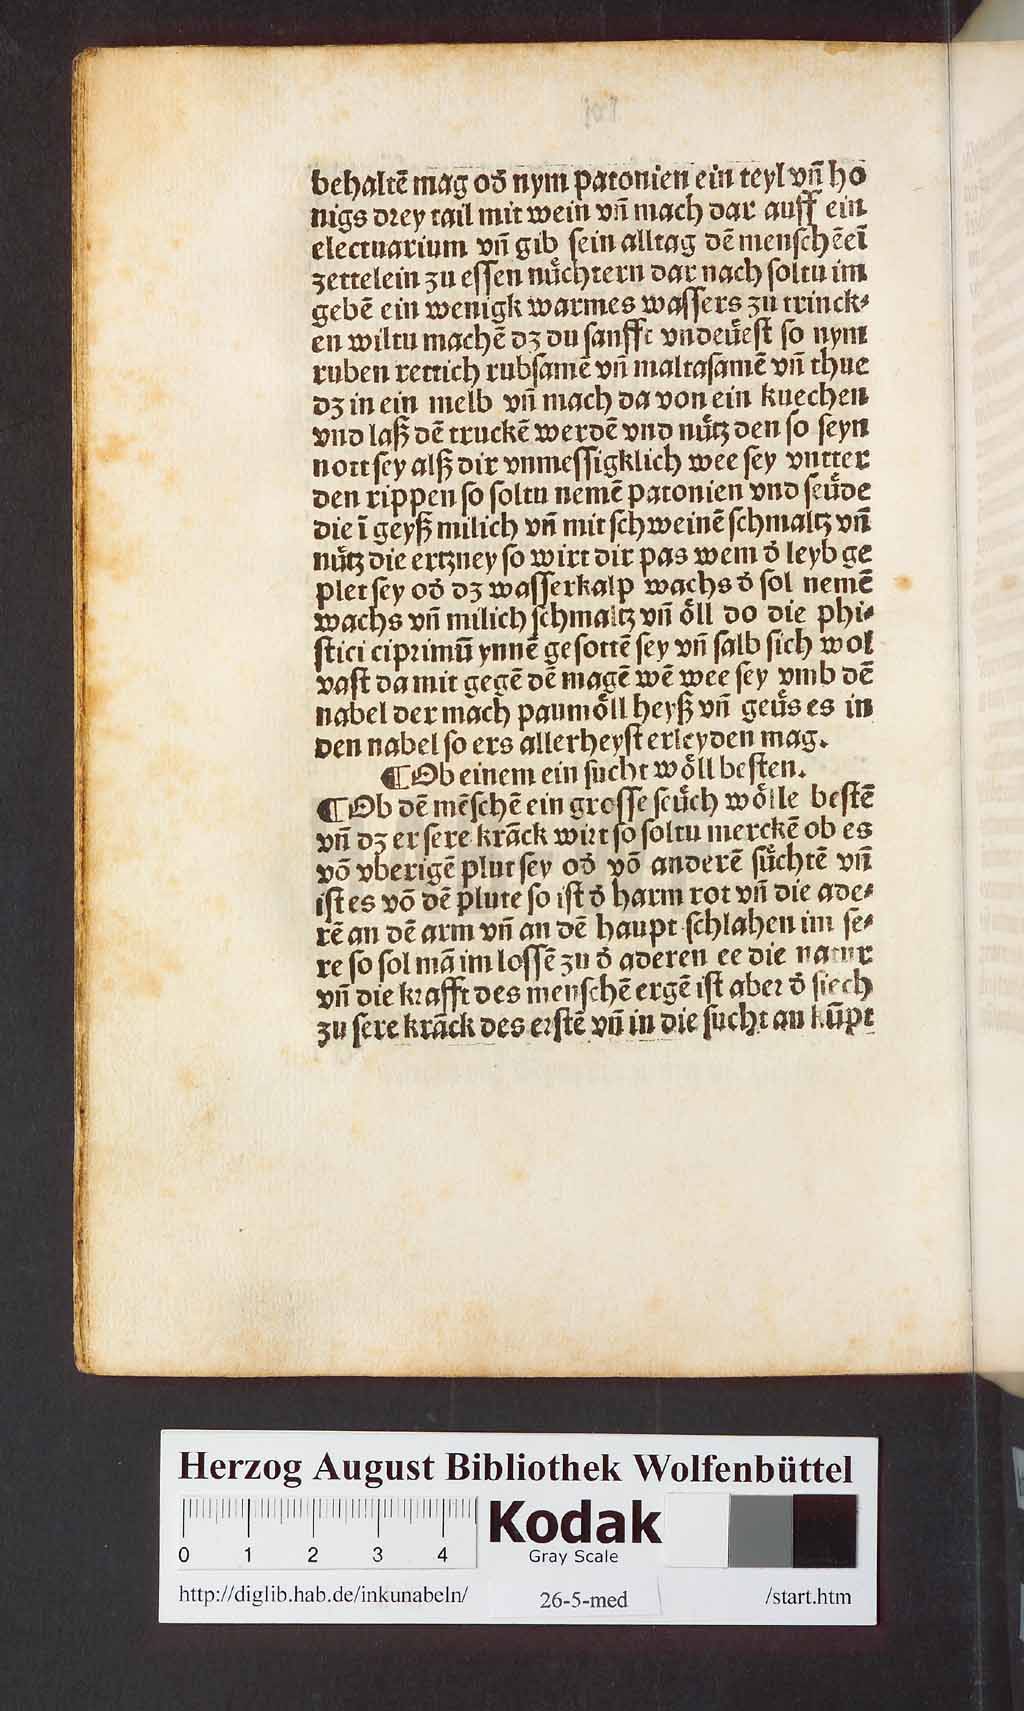 behaltē mag od̕ nym patonien ein teyl vn̄ ho
nigs drey tail mit wein vn̄ mach dar auff ein
electuarium vn̄ gib sein alltag dē menschē eī
zettelein zu essen nuͤchtern dar nach soltu im
gebē ein wenigk warmes wassers zu trinck⸗
en wiltu machē dz du sanfft vndeuͤest so nym
ruben rettich rubsamē vn̄ maltasamē vn̄ thue
dz in ein melb vn̄ mach da von ein kuechen
vnd laß dē truckē werdē vnd nuͤtz den so seyn
nott sey alß dir vnmessigklich wee sey vntter
den rippen so soltu nemē patonien vnd seuͤde
die ī geyß milich vn̄ mit schweinē schmaltz vn̄
nuͤtz die ertzney so wirt dir pas wem d̕ leyb ge
plet sey od̕ dz wasserkalp wachs d̕ sol nemē
wachs vn̄ milich schmaltz vn̄ oͤll do die phi⸗
stici ciprimū ynnē gesottē sey vn̄ salb sich wol
vast da mit gegē dē magē wē wee sey vmb dē
nabel der mach paumoͤll heyß vn̄ geuͤs es in
den nabel so ers allerheyst erleyden mag.
¶Ob einem ein sucht woͤll besten.
¶Ob dē mēschē ein grosse seuͤch woͤlle bestē
vn̄ dz er sere krāck wirt so soltu merckē ob es
vō vberigē plut sey od̕ vō anderē suͤchtē vn̄
ist es vō dē plute so ist d̕ harm rot vn̄ die ade⸗
rē an dē arm vn̄ an dē haupt schlahen im sē⸗
re so sol mā im lossē zu d̕ aderen ee die natur
vn̄ die krafft des menschē ergē ist aber d̕ siech
zu sere krāck des erstē vn̄ in die sucht an kūpt
Herzog August Bibliothek Wolfenbüttel
0 1 2 3 4
Kodak
Gray Scale
http://diglib.hab.de/inkunabeln/ 26-5-med /start.htm